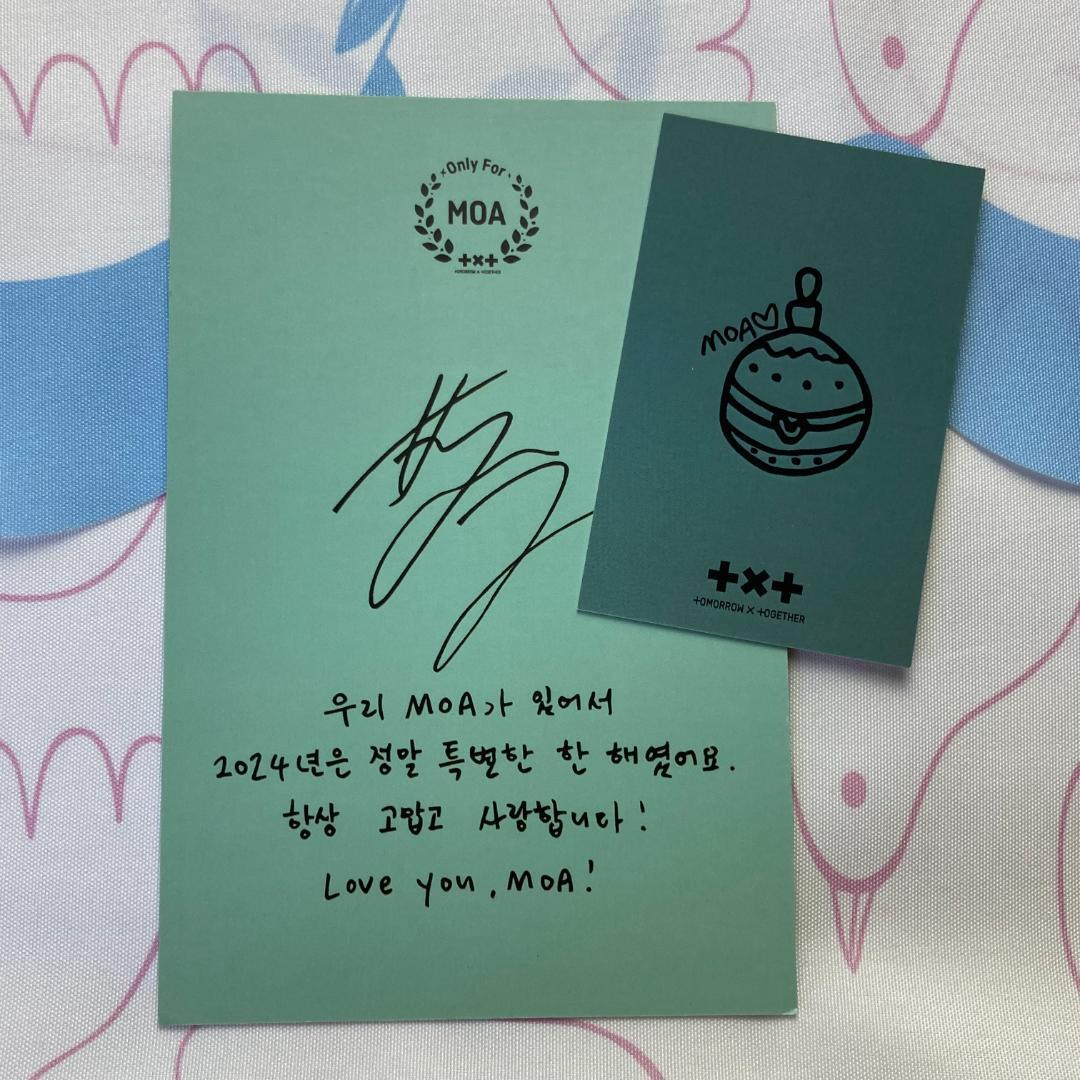 Only For
MOA
+x+
TOMORROW X TOGETHER
우리 MOA가 있어서
2024년은 정말 특별한 한 해였어요.
항상 고맙고 사랑합니다!
Love you, MOA!
MOA♡
+x+
TOMORROW X TOGETHER